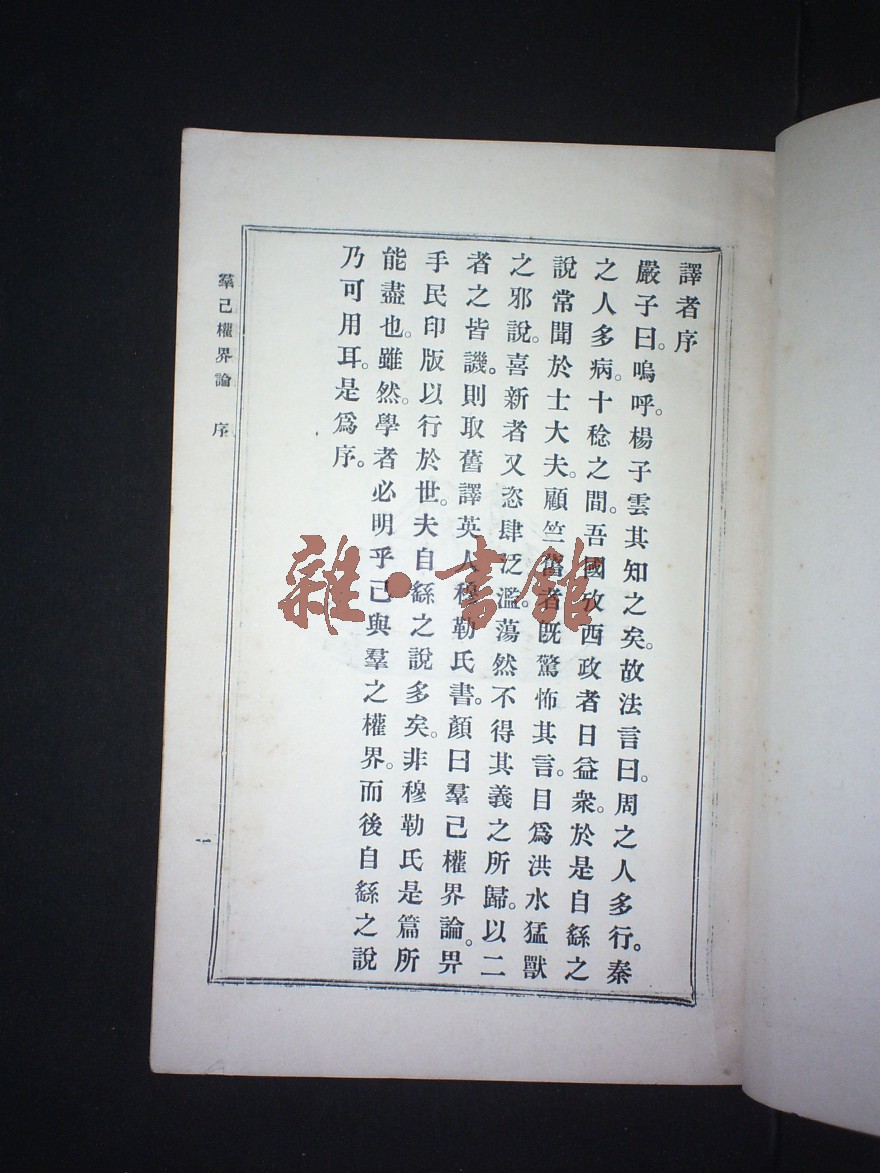 譯者序
嚴子曰。嗚呼。楊子雲其知之矣。故法言曰。周之人多行。秦
之人多病。十稔之間。吾國攷西政者日益衆。於是自繇之
說常聞於士大夫。顧竺舊者既驚怖其言。目爲洪水猛獸
之邪說。喜新者又恣肆泛濫。蕩然不得其義之所歸。以二
者之皆譏。則取舊譯英人穆勒氏書。顏曰羣己權界論。畀
手民印版以行於世。夫自繇之說多矣。非穆勒氏是篇所
能盡也。雖然。學者必明乎己與羣之權界。而後自繇之說
乃可用耳。是爲序。
羣己權界論 序
一
雜·書館